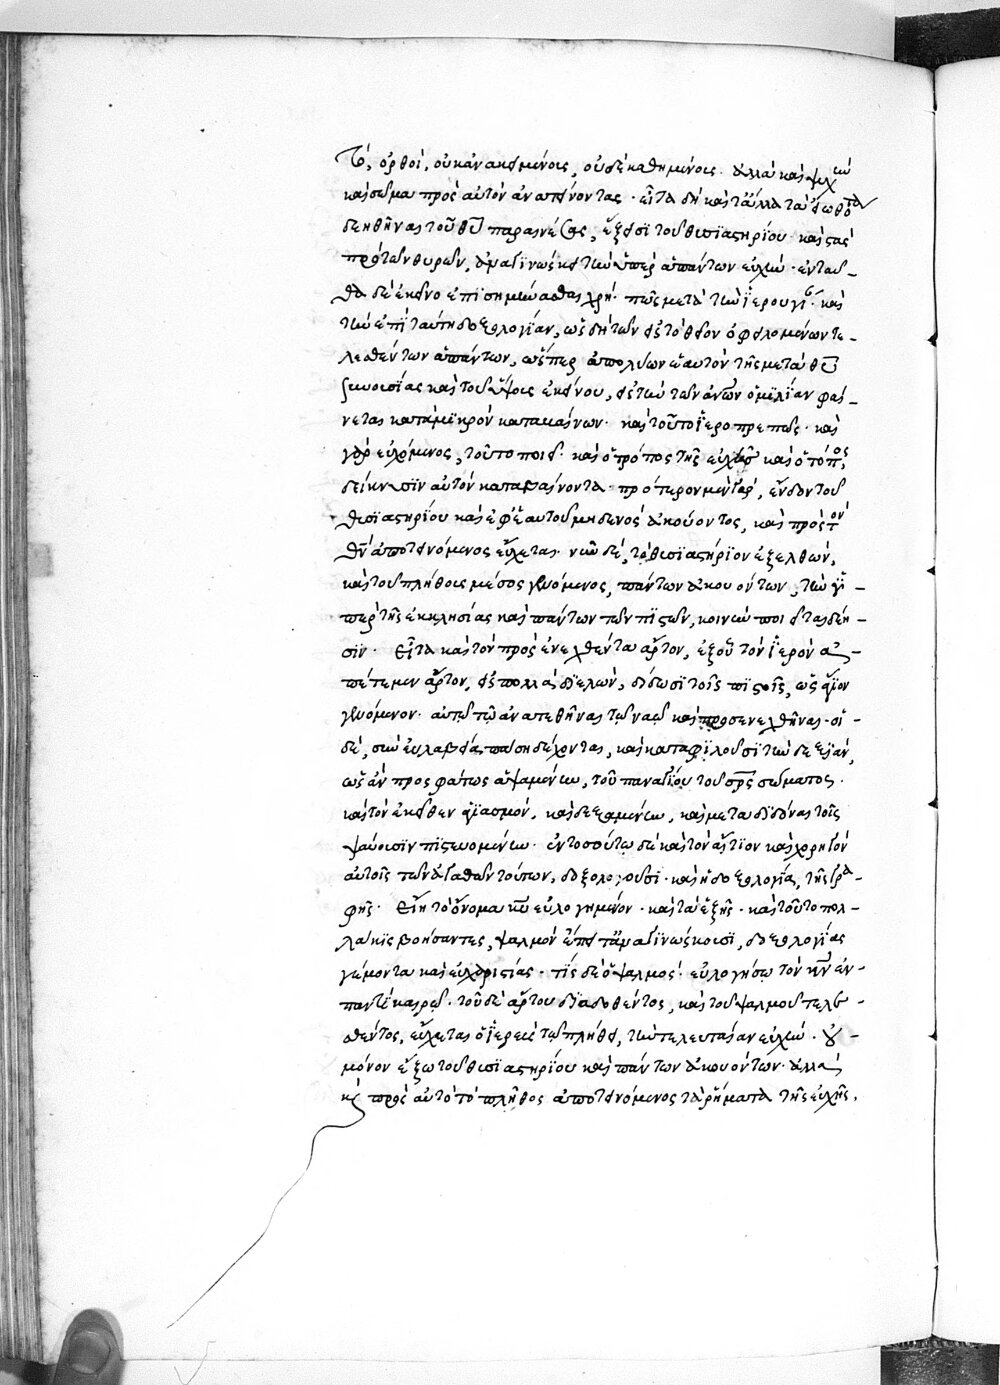 τό, ὀρθοὶ, οὐκ ἀνακειμένοις, οὐδὲ καθημένοις. ἀλλὰ καὶ ψυχὴν
καὶ σῶμα πρὸς αὐτὸν ἀνατείνοντας. εἶτα δὴ καὶ τἄλλα τὰ εἰωθότα
δεηθῆναι τοῦ θῦ παραινέσας, ἔξεισι τοῦ θυσιαστηρίου. καὶ στὰς
πρὸ τῶν θυρῶν, ἀναγινώσκει τὴν ὑπὲρ ἁπάντων εὐχήν. ἐνταῦ-
θα δὲ ἐκεῖνο ἐπισημήνασθαι χρή. πῶς μετὰ τὴν ἱερουργίαν. καὶ
τὴν ἐπὶ ταύτῃ δοξολογίαν, ὡς δὴ τῶν εἰς τὸ θεῖον ὀφειλομένων τε-
λεσθέντων ἁπάντων, ὥσπερ ἀπολύων ἑαυτὸν τῆς μετὰ θῦ
συνουσίας καὶ τοῦ ὕψους ἐκείνου, εἰς τὴν τῶν ἀνων ὁμιλίαν φαί-
νεται κατὰ μικρὸν καταβαίνων. καὶ τοῦτο ἱεροπρεπῶς. καὶ
γὰρ εὐχόμενος, τοῦτο ποιεῖ. καὶ ὁ τρόπος τῆς εὐχῆς καὶ ὁ τόπος,
δείκνυσιν αὐτὸν καταβαίνοντα. πρότερον μὲν γὰρ, ἔνδον τοῦ
θυσιαστηρίου καὶ ἐφ' ἑαυτοῦ μηδενὸς ἀκούοντος, καὶ πρὸς τὸν
θν ἀποτεινόμενος εὔχεται. νῦν δὲ, τὸ θυσιαστήριον ἐξελθὼν,
καὶ τοῦ πλήθους μέσος γενόμενος, πάντων ἀκουόντων, τὴν ὑ-
πὲρ τῆς ἐκκλησίας καὶ πάντων τῶν πιστῶν, κοινὴν ποιεῖται δέη-
σιν. Εἶτα καὶ τὸν προσενεχθέντα ἄρτον, ἐξ οὗ τὸν ἱερὸν ἀ-
πέτεμεν ἄρτον, εἰς πολλὰ διελὼν, δίδωσι τοῖς πιστοῖς, ὡς ἅγιον
γενόμενον. αὐτῷ τῷ ἀνατεθῆναι τῷ ναῷ καὶ προσενεχθῆναι. οἱ
δὲ, σὺν εὐλαβείᾳ πάσῃ δέχονται, καὶ καταφιλοῦσι τὴν δεξιὰν,
ὡς ἂν προσφάτως ἁψαμένην, τοῦ παναγίου τοῦ σρς σώματος.
καὶ τὸν ἐκεῖθεν ἁγιασμὸν, καὶ δεξαμένην, καὶ μεταδιδόναι τοῖς
ψαύουσιν πιστευομένην. ἐν τοσούτῳ δὲ καὶ τὸν αἴτιον καὶ χορηγὸν
αὐτοῖς τῶν ἀγαθῶν τούτων, δοξολογοῦσι. καὶ ἡ δοξολογία, τῆς γρα-
φῆς. Εἴη τὸ ὄνομα κυ εὐλογημένον. καὶ τὰ ἑξῆς. καὶ τοῦτο πολ-
λάκις βοήσαντες, ψαλμὸν ἔπειτα ἀναγινώσκουσι, δοξολογίας
γέμοντα καὶ εὐχαριστίας. τίς δὲ ὁ ψαλμός. εὐλογήσω τὸν κν ἐν
παντὶ καιρῷ. τοῦ δὲ ἄρτου διαδοθέντος, καὶ τοῦ ψαλμοῦ τελεσ-
θέντος, εὔχεται ὁ ἱερεὺς τῷ πλήθει, τὴν τελευταίαν εὐχήν. οὐ
μόνον ἔξω τοῦ θυσιαστηρίου καὶ πάντων ἀκουόντων. ἀλλὰ
καὶ πρὸς αὐτὸ τὸ πλῆθος ἀποτεινόμενος τὰ ῥήματα τῆς εὐχῆς.